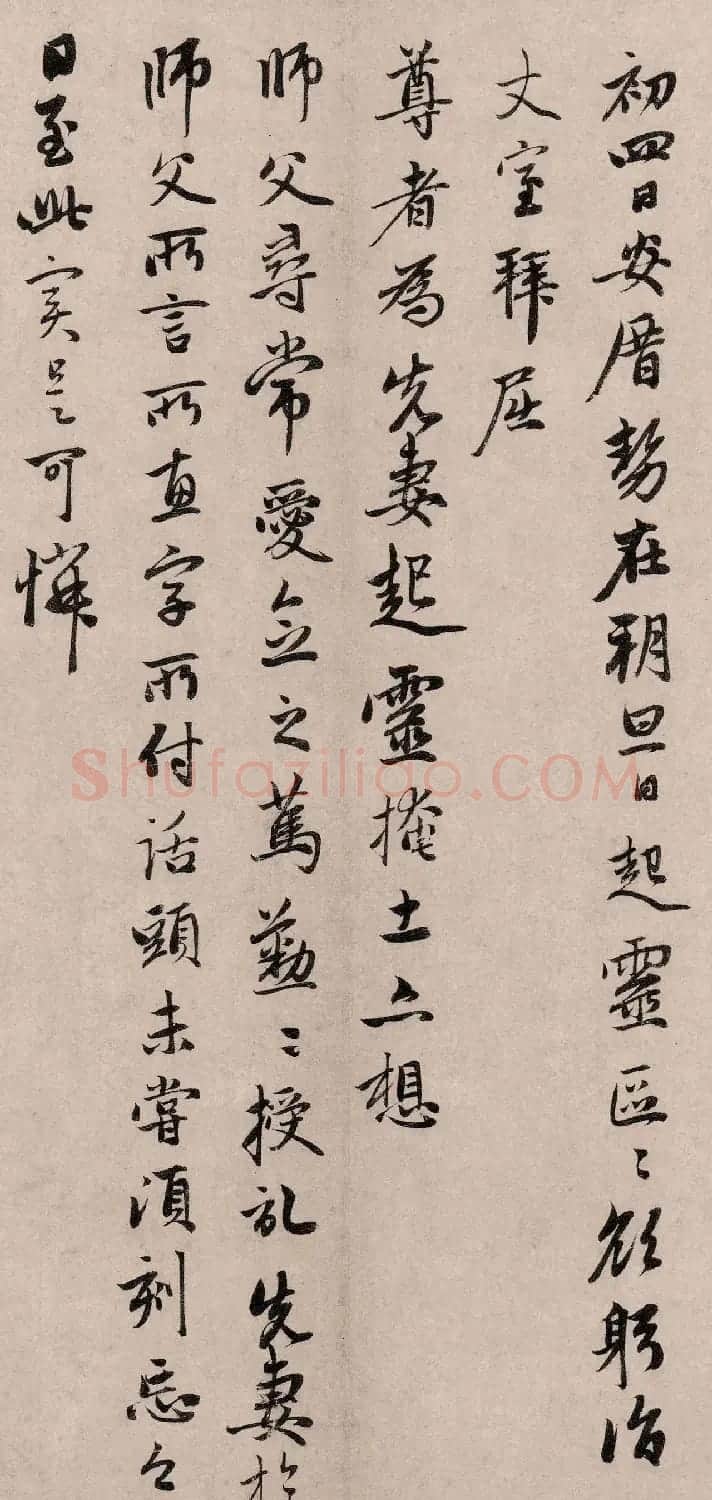 初四日安厝勢在朔旦日起靈區〻欲躬詣
丈室拜屈
尊者為先妻起靈掩土亦想
師父尋常愛念之篤懃〻授記先妻於
師父所言所惠字所付話頭未嘗須刻忘今
日至此實是可憐
Shufaziliao.COM